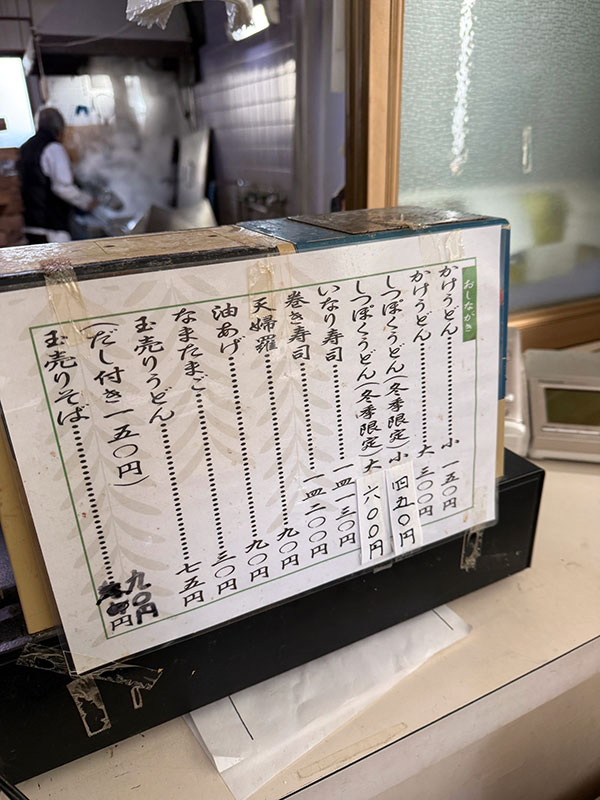 おしながき
かけうどん………小 一五〇円
かけうどん………大 三〇〇円
しっぽくうどん(冬季限定)小 四五〇円
しっぽくうどん(冬季限定)大 六〇〇円
いなり寿司………一皿一三〇円
巻き寿司………一皿二〇〇円
天婦羅………九〇円
油あげ………九〇円
なまたまご………三〇円
玉売りうどん………七五円
(だし付き一五〇円)
玉売りそば………九〇円